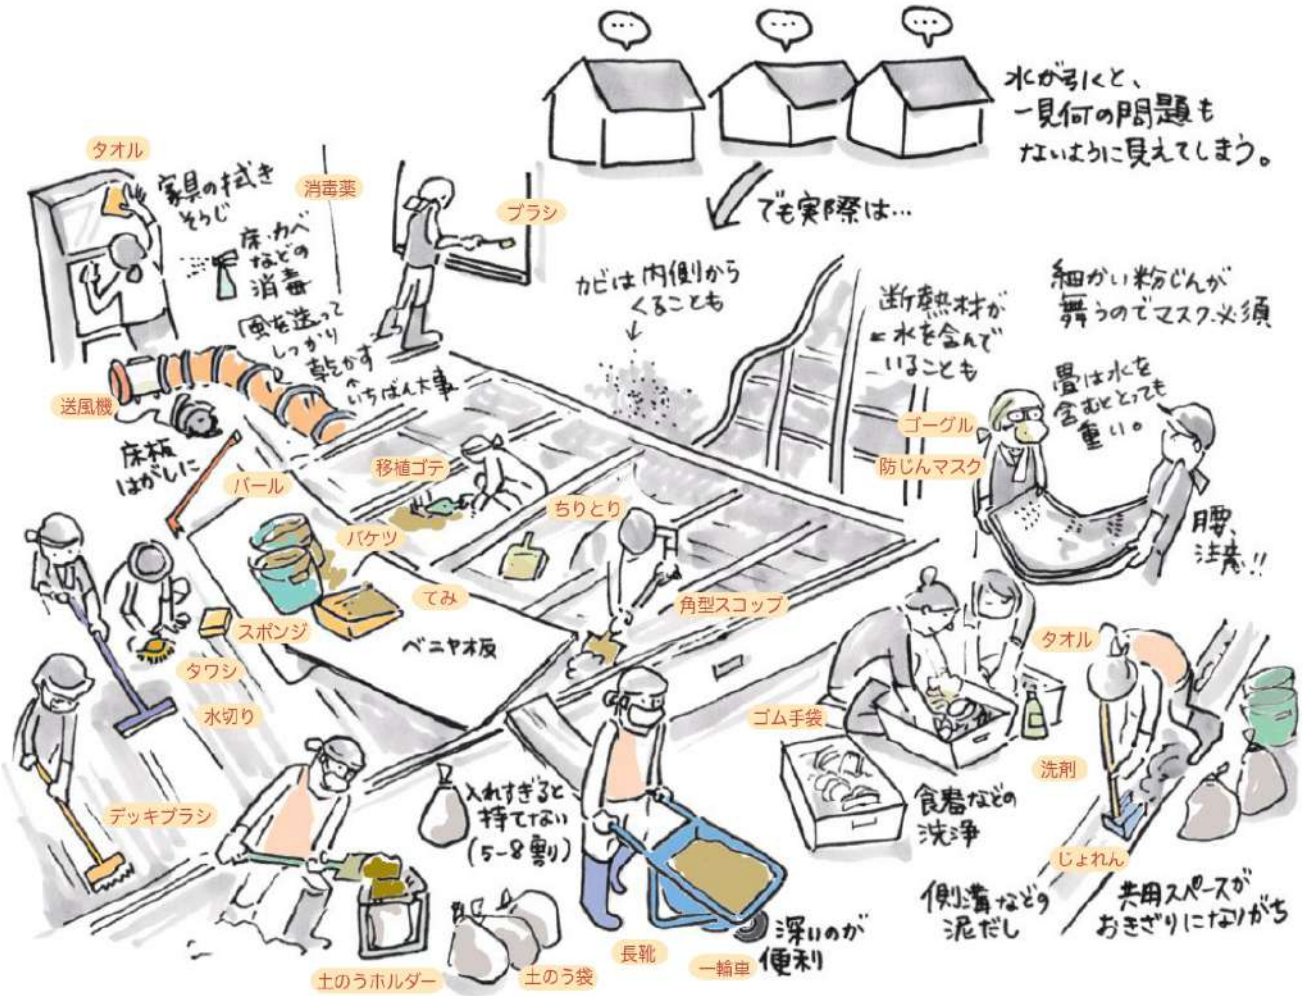 水が引くと、
一見何の問題も
ないように見えてしまう。
でも実際は…
タオル
家具の拭き
そうじ
消毒薬
床・カベ
などの
消毒
ブラシ
風を送って
しっかり
乾かす
いちばん大事
送風機
床板
はがしに
バール
カビは内側から
くることも
断熱材が
水を含んで
いることも
細かい粉じんが
舞うのでマスク必須
畳は水を
含むととっても
重い。
ゴーグル
防じんマスク
腰、
注意!!
移植ゴテ
ちりとり
バケツ
てみ
角型スコップ
ベニヤ板
スポンジ
タワシ
水切り
デッキブラシ
入れすぎると
持てない
(5-8割)
土のうホルダー
土のう袋
長靴
一輪車
深いのが
便利
ゴム手袋
タオル
洗剤
食器などの
洗浄
じょれん
側溝などの
泥だし
共用スペースが
おきざりになりがち